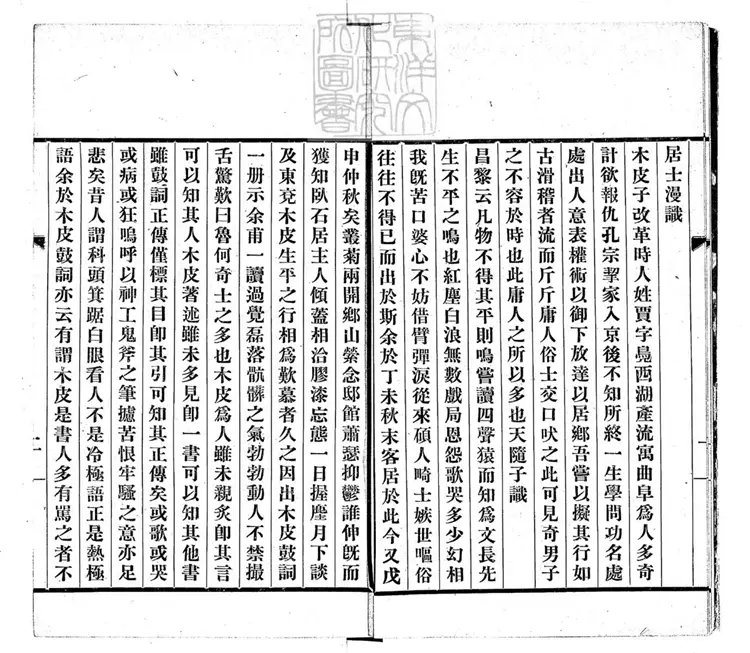 居士漫識
木皮子改革時人姓賈字鳧西湖產流寓曲阜爲人多奇
計欲報仇孔宗挈家入京後不知所終一生學問功名處
處出人意表權術以御下放達以居鄉吾嘗以擬其行如
古滑稽者流而斤斤庸人俗士交口吠之此可見奇男子
之不容於時也此庸人之所以多也天隨子識
昌黎云凡物不得其平則鳴嘗讀四聲猿而知爲文長先
生不平之鳴也紅塵白浪無數戲局恩怨歌哭多少幻相
我旣苦口婆心不妨借臂彈淚從來碩人畸士嫉世嘔俗
往往不得已而出於斯余於丁未秋末客居於此今又戊
申仲秋矣叢菊兩開鄉山縈念邸館蕭瑟抑鬱誰伸旣而
獲知臥石居主人傾蓋相洽膠漆忘態一日握麈月下談
及東兗木皮生平之行相爲歎慕者久之因出木皮鼓詞
一册示余甫一讀過覺磊落骯髒之氣勃勃動人不禁撮
舌驚歎曰魯何奇士之多也木皮爲人雖未親炙卽其言
可以知其人木皮著述雖未多見卽一書可以知其他書
雖鼓詞正傳僅標其目卽其引可知其正傳矣或歌或哭
或病或狂嗚呼以神工鬼斧之筆攄苦恨牢騷之意亦足
悲矣昔人謂科頭箕踞白眼看人不是冷極語正是熱極
語余於木皮鼓詞亦云有謂木皮是書人多有罵之者不